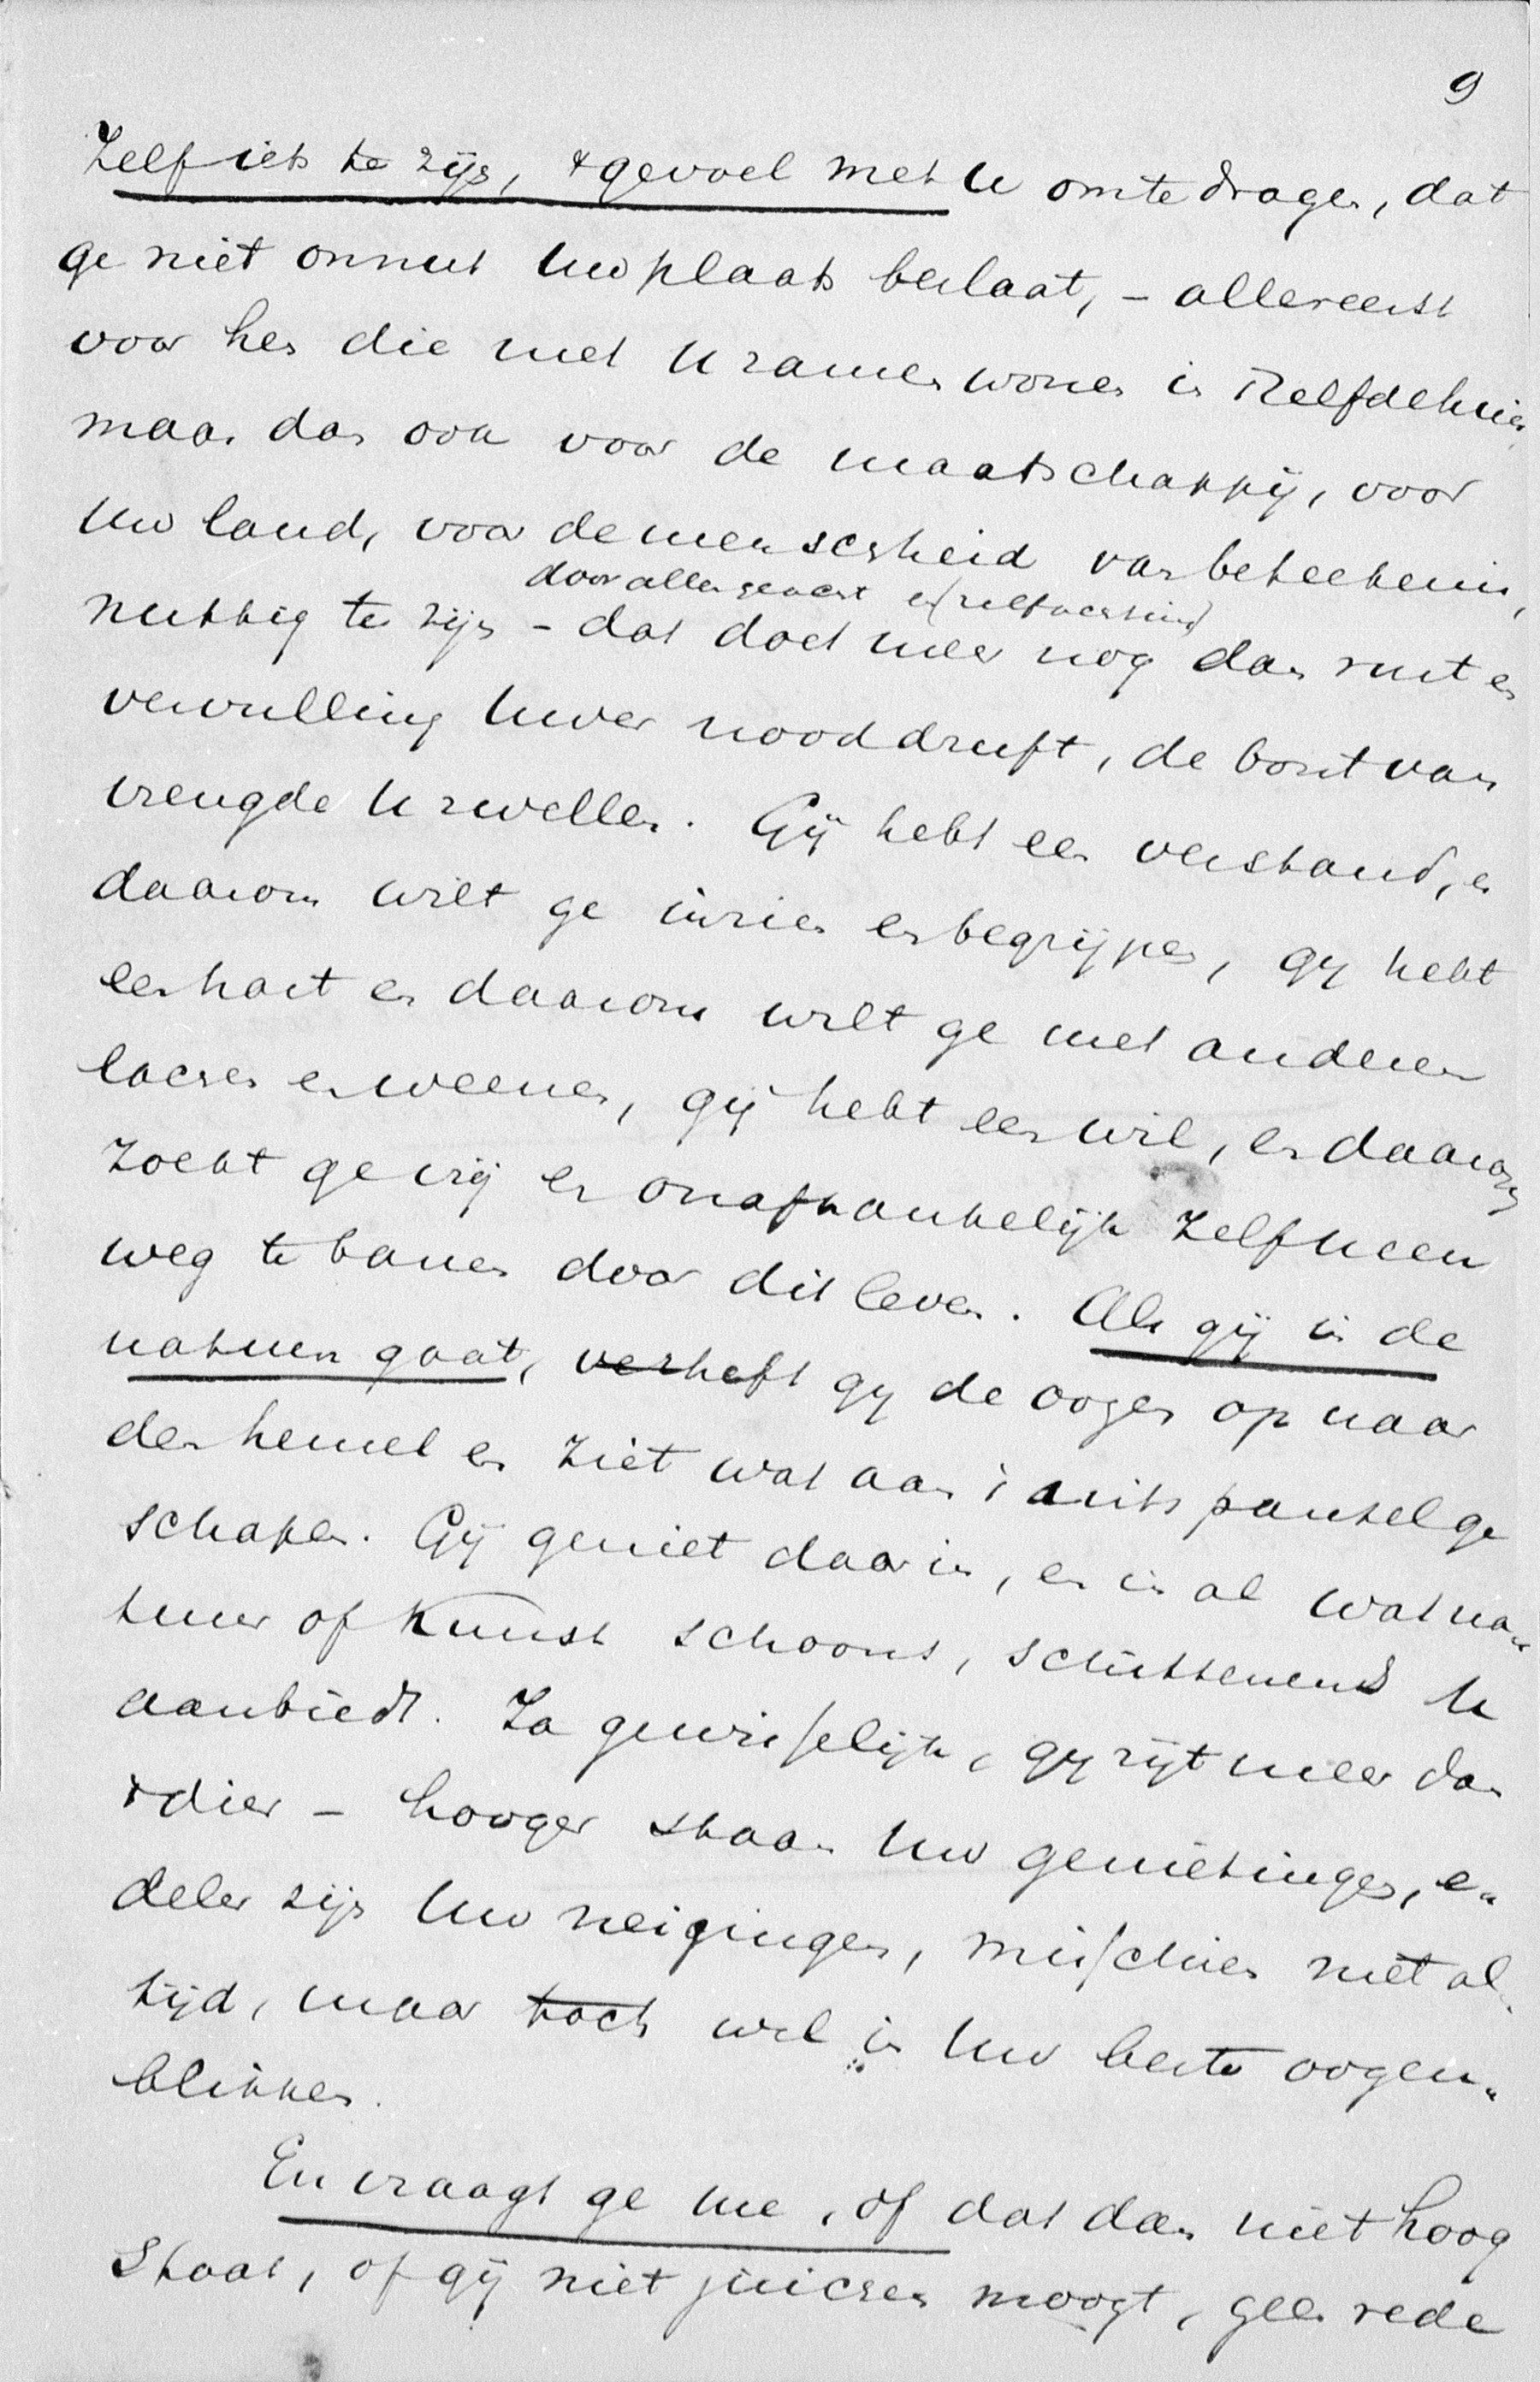 9
Zelf iets te zijn, 't gevoel met U om te dragen, dat
ge niet onnut Uw plaats beslaat, - allereerst
voor hen die met U samen wonen in 't zelfde huis,
maar dan ook voor de maatschappij, voor
Uw land, voor de menschheid van beteekenis,
door allen geacht en
nuttig te zijn - dat doet meer nog dan rust en
vervulling Uwer nooddruft, de borst van
vreugde U zwellen. Gij hebt een verstand, en
daarom wilt ge inzien en begrijpen, gij hebt
een hart en daarom wilt ge met anderen
lachen en weenen, gij hebt een wil, en daarom
zoekt ge vrij en onafhankelijk zelf U een
weg te banen door dit leven. Als gij in de
natuur gaat, verheft gij de oogen op naar
den hemel en ziet wat aan 't uitspansel ge
schapen. Gij geniet daarin, en in al wat na-
tuur of Kunst schoons, schitterends U
aanbiedt. Ja gewisselijk, gij zijt meer dan
't dier - hooger staan Uw genietingen, e-
deler zijn Uw neigingen, misschien niet al-
tijd, maar toch wel in Uw beste oogen-
blikken.
En vraagt ge me, of dat dan niet hoog
staat, of gij niet juichen moogt, geen rede